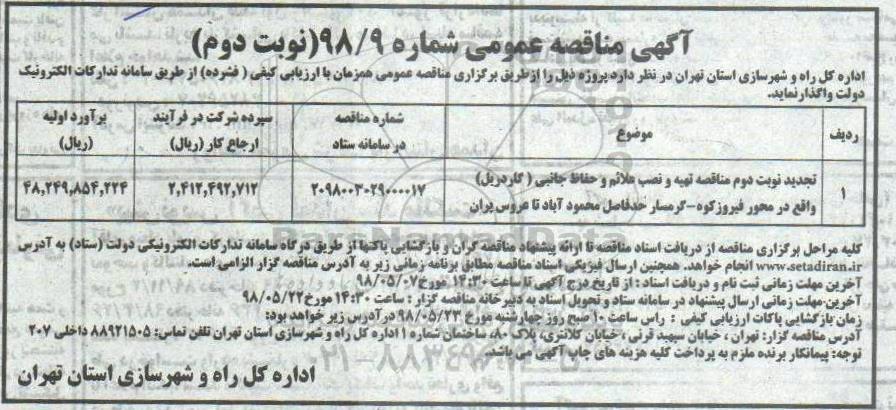 آگهی مناقصه عمومی شماره ۹۸/۹(نوبت دوم)
اداره کل راه و شهرسازی استان تهران در نظر دارد پروژه ذیل را از طریق برگزاری مناقصه عمومی همزمان با ارزیابی کیفی ( فشرده) از طریق سامانه تدارکات الکترونیک
دولت واگذار نماید.
ردیف موضوع شماره مناقصه در سامانه ستاد سپرده شرکت در فرآیند ارجاع کار (ریال) برآورد اولیه (ریال)
۱ تجدید نوبت دوم مناقصه تهیه و نصب علائم و حفاظ جانبی ( گاردریل) ۲۰۹۸۰۰۳۰۲۹۰۰۰۰۱۷ ۲,۴۱۲,۴۹۲,۷۱۲ ۴۸,۲۴۹,۸۵۴,۲۲۴
واقع در محور فیروزکوه-گرمسار حدفاصل محمود آباد تا عروس پران
کلیه مراحل برگزاری مناقصه از دریافت اسناد مناقصه تا ارائه پیشنهاد مناقصه گران و بازگشایی پاکتها از طریق درگاه سامانه تدارکات الکترونیکی دولت (ستاد) به آدرس
www.setadiran.ir انجام خواهد. همچنین ارسال فیزیکی اسناد مناقصه مطابق برنامه زمانی زیر به آدرس مناقصه گزار الزامی است.
آخرین مهلت زمانی ثبت نام و دریافت اسناد : از تاریخ درج آگهی تا ساعت ۱۴:۳۰ مورخ ۹۸/۰۵/۰۷
آخرین مهلت زمانی ارسال پیشنهاد در سامانه ستاد و تحویل اسناد به دبیرخانه مناقصه گزار : ساعت ۱۴:۳۰ مورخ ۹۸/۰۵/۲۲
زمان بازگشایی پاکات ارزیابی کیفی : راس ساعت ۱۰ صبح روز چهارشنبه مورخ ۹۸/۰۵/۲۳ در آدرس زیر خواهد بود:
آدرس مناقصه گزار: تهران ، خیابان سپهبد قرنی ، خیابان کلانتری، پلاک ۸۰، ساختمان شماره ۱ اداره کل راه و شهرسازی استان تهران تلفن تماس: ۸۸۹۲۱۵۰۵ داخلی ۲۰۷
توجه: پیمانکار برنده ملزم به پرداخت کلیه هزینه های چاپ آگهی می باشد.
اداره کل راه و شهرسازی استان تهران
ParsNamadData